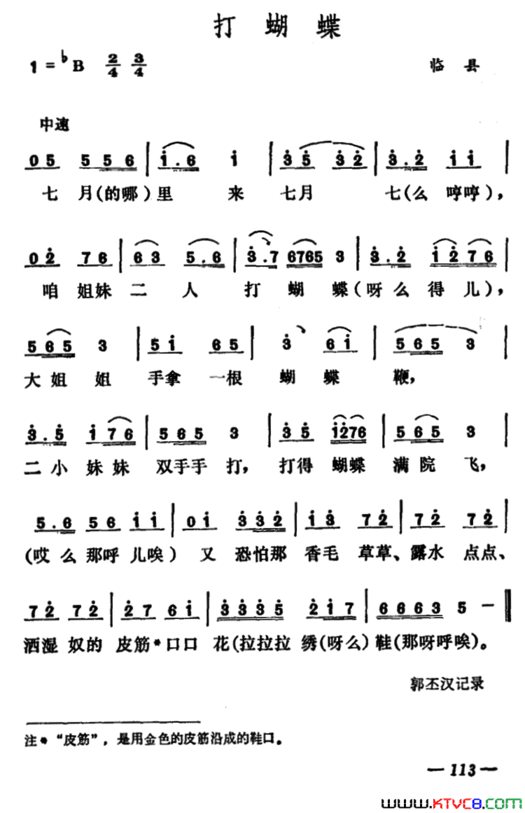 打 蝴 蝶
1 = ♭B 2/4 3/4 临 县
中速
0 5 5 5 6 | i . 6 i | 3 5 3 2 | 3 . 2 i i |
七 月(的哪)里 来 七月 七(么 哼哼),
0 2 7 6 | 6 3 5 . 6 | 3 . 7 6765 3 | 3 . 2 i 2 7 6 |
咱 姐妹 二 人 打 蝴 蝶(呀么 得 儿),
5 6 5 3 | 5 i 6 5 | 3 6 i | 5 6 5 3 |
大 姐 姐 手拿 一根 蝴 蝶 鞭,
3 . 5 i 7 6 | 5 6 5 3 | 3 5 i276 | 5 6 5 3 |
二 小 妹 妹 双手手 打, 打得 蝴蝶 满院 飞,
5 . 6 5 6 i i | 0 i 3 3 2 | i 3 7 2 | 7 2 7 2 |
(哎 么 那呼 儿唉) 又 恐怕那 香毛 草草、露水 点点、
7 2 7 2 | 2 7 6 i | 3 3 3 5 | 2 i 7 | 6 6 6 3 5 — ‖
洒湿 奴的 皮筋*口口 花(拉拉拉 绣(呀么)鞋(那呀呼唉)。
郭丕汉记录
注* “皮筋”,是用金色的皮筋沿成的鞋口。
— 113 —
www.KTVC8.com